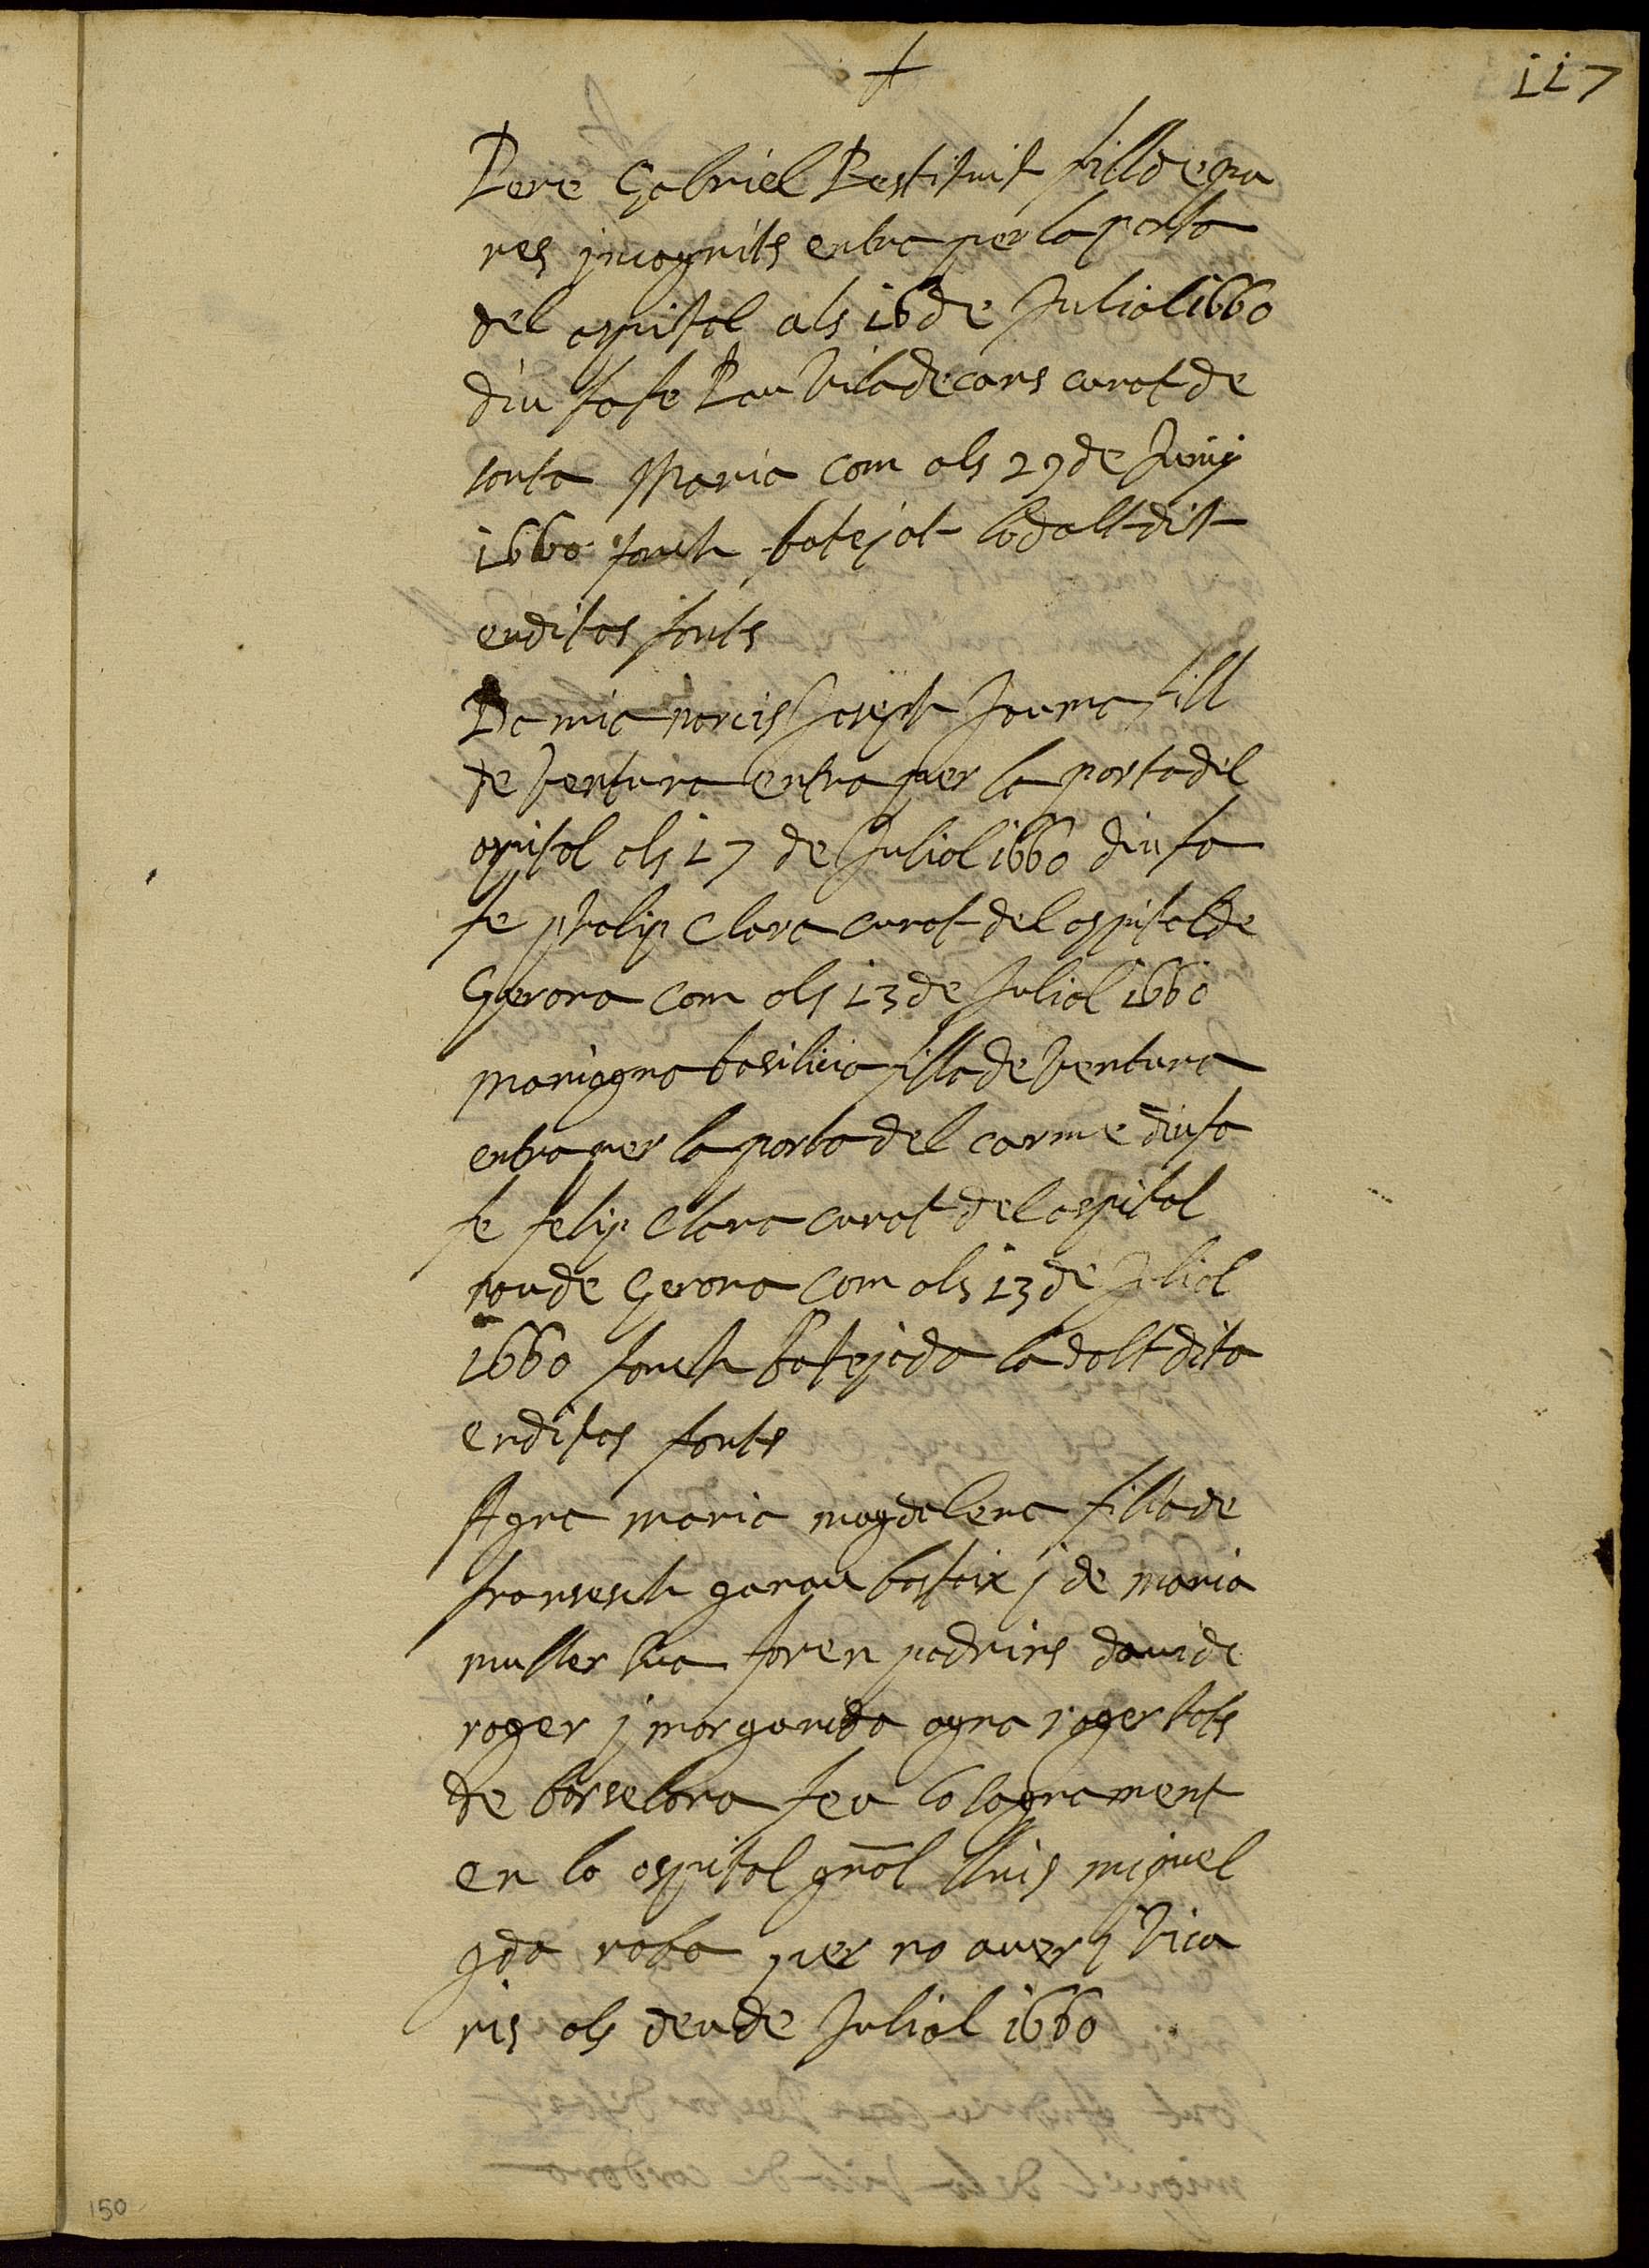 +
117
Pere Gabriel Restituit fill de pa
res jncognits entra per la porta
del ospital als 16 de Juliol 1660
diu sa fe Pau Viladecans curat de
santa Maria com als 29 de Juny
1660 fonch batejat lo dalt dit
en ditas fonts
Damia narcis Joseph Jauma fill
de Ventura entra per la porta del
ospital als 17 de Juliol 1660 diu sa
fe phalip Clara curat del ospital de
Gerona com als 13 de Juliol 1660
mariagna basilicia filla de Ventura
entra per la porta del carme diu sa
fe felip Clara curat del ospital
nou de Gerona com als 13 de Juliol
1660 fonch batejada la dalt dita
en ditas fonts
Agna maria magdalena filla de
fransesch garau bastaix j de maria
muller sua foren padrins davide
roger j margarida agna roger tots
de barselona feu lo sagrament
en lo ospital gñal lluis miquel
roba per no aver j Vica
ris als deu de Juliol 1660
150